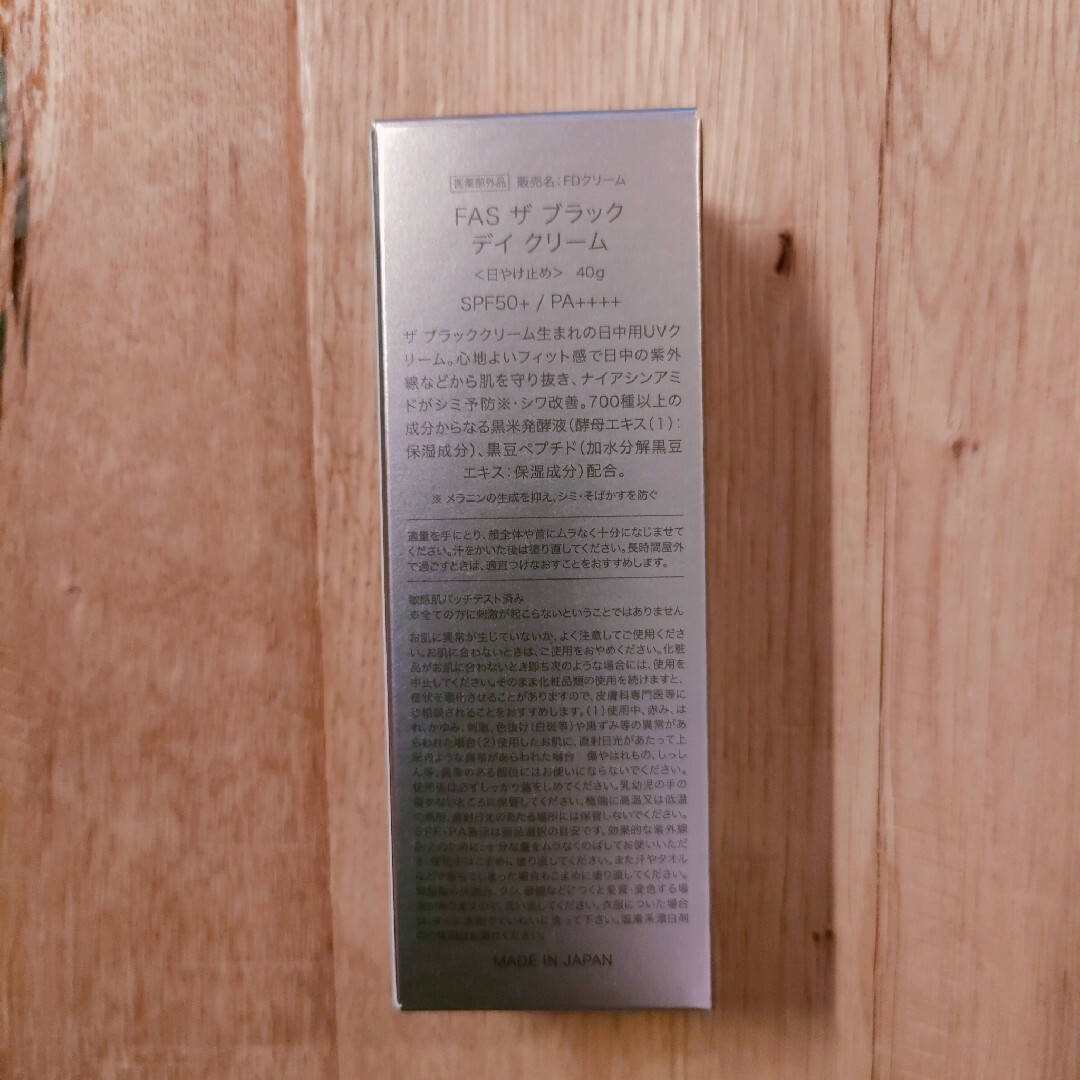 医薬部外品 販売名:FDクリーム
FAS ザ ブラック
デイ クリーム
<日やけ止め> 40g
SPF50+ / PA++++
ザ ブラッククリーム生まれの日中用UVク
リーム。心地よいフィット感で日中の紫外
線などから肌を守り抜き、ナイアシンアミ
ドがシミ予防※・シワ改善。700種以上の
成分からなる黒米発酵液(酵母エキス(1):
保湿成分)、黒豆ペプチド(加水分解黒豆
エキス:保湿成分)配合。
※ メラニンの生成を抑え、シミ・そばかすを防ぐ
適量を手にとり、顔全体や首にムラなく十分になじませて
ください。汗をかいた後は塗り直してください。長時間屋外
で過ごすときは、適宜つけなおすことをおすすめします。
敏感肌パッチテスト済み
※全ての方に刺激が起こらないということではありません
お肌に異常が生じていないか、よく注意してご使用くださ
い。お肌に合わないときは、ご使用をおやめください。化粧
品がお肌に合わないとき即ち次のような場合には、使用を
中止してください。そのまま化粧品類の使用を続けますと、
症状を悪化させることがありますので、皮膚科専門医等に
ご相談されることをおすすめします。(1)使用中、赤み、は
れ、かゆみ、刺激、色抜け(白斑等)や黒ずみ等の異常があ
らわれた場合(2)使用したお肌に、直射日光があたって上
記のような異常があらわれた場合 傷やはれもの、しっし
ん等、異常のある部位にはお使いにならないでください。
使用後は必ずしっかり蓋をしめてください。乳幼児の手の
届かないところに保管してください。極端に高温又は低温
の場所、直射日光のあたる場所には保管しないでください。
SPF・PA表示は商品選択の目安です。効果的な紫外線
ために、十分な量をムラなくのばしてお使いいただ
き、こまめに塗り直してください。また汗やタオル
などで落ちてしまった場合もこまめに塗り直してください。
などにつくと変質・変色する場
合がありますので、ください。衣服についた場合
ていねいに洗って下さい。塩素系漂白剤
のご使用はお避けください。
MADE IN JAPAN